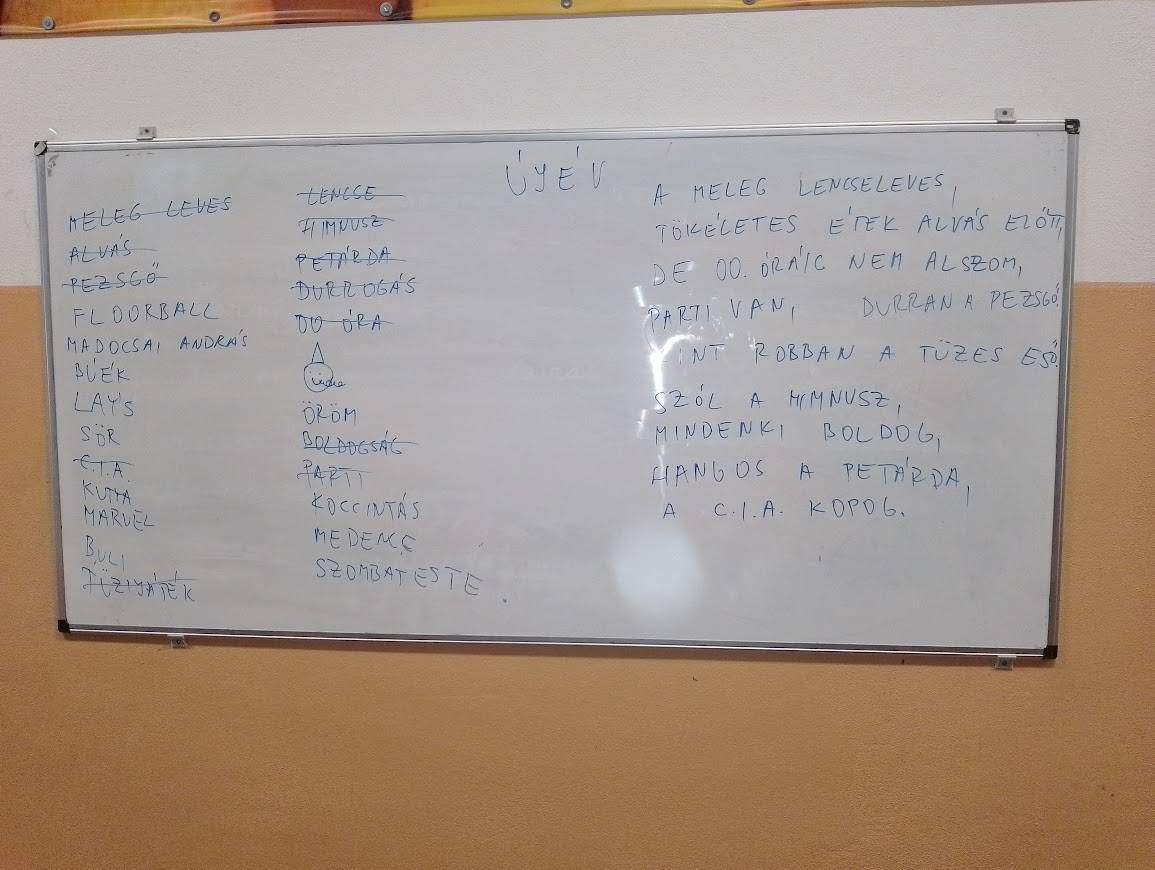 ÚYÉV
MELEG LEVES
ALVÁS
PEZSGŐ
FLOORBALL
MADOCSAI ANDRÁS
BÚÉK
LAY'S
SÖR
C.I.A.
KUTYA
MARVEL
BULI
TŰZIJÁTÉK
LENCSE
HIMNUSZ
PETÁRDA
DURROGÁS
00 ÓRA
ÖRÖM
BOLDOGSÁG
PARTI
KOCCINTÁS
MEDENCE
SZOMBAT ESTE
A MELEG LENCSELEVES,
TÖKÉLETES ÉTEK ALVÁS ELŐTT,
DE 00. ÓRÁIG NEM ALSZOM,
PARTI VAN, DURRAN A PEZSGŐ.
KINT ROBBAN A TÜZES ESŐ.
SZÓL A HIMNUSZ,
MINDENKI BOLDOG,
HANGOS A PETÁRDA,
A C.I.A. KOPOG.